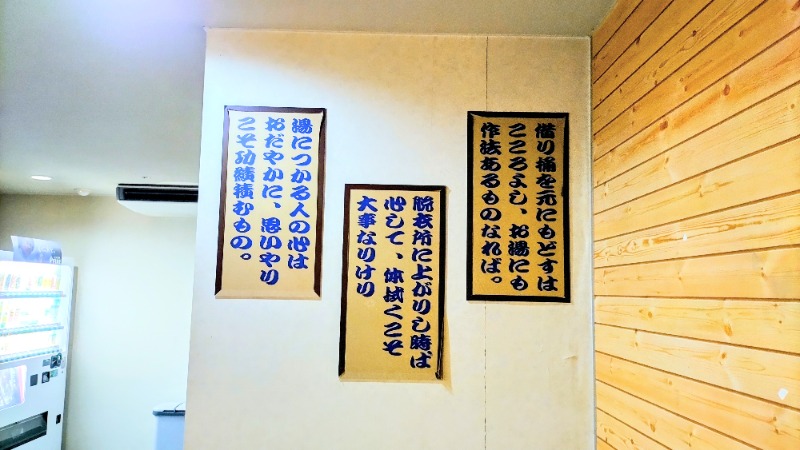 借り桶を元にもどすは
こころよし、お湯にも
作法あるものなれば。
脱衣所に上がりし時ば
心して、体拭くこそ
大事なりけり
湯につかる人の心は
おだやかに、思いやり
こそ功績積むもの。